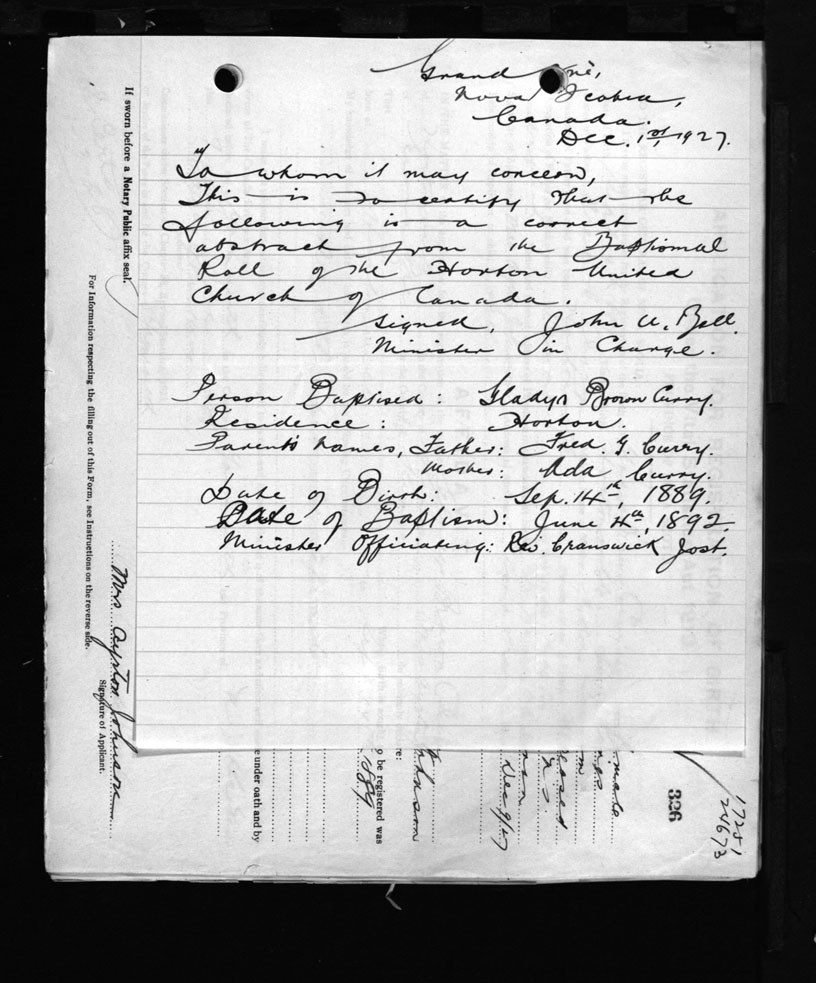 Grand Pré,
Nova Scotia,
Canada.
Dec. 1st, 1927.
To whom it may concern,
This is to certify that the
following is a correct
abstract from the Baptismal
Roll of the Horton United
Church of Canada.
Signed, John A. Bell.
Minister in Charge.
Person Baptised: Gladys Brown Curry.
Residence: Horton.
Parents names, Father: Fred. G. Curry.
Mother: Ada Curry.
Date of Birth: Sep. 14th, 1889.
Date of Baptism: June 4th, 1892.
Minister Officiating: Rev. Cranswick Jost.
If sworn before a Notary Public affix seal.
For Information respecting the filling out of this Form, see Instructions on the reverse side.
Mrs. Ayrton Johnson
Signature of Applicant.
e under oath and by
o be registered was
1889
re:
Johnson
Dec 9/27
N.S.
326
17251
24673